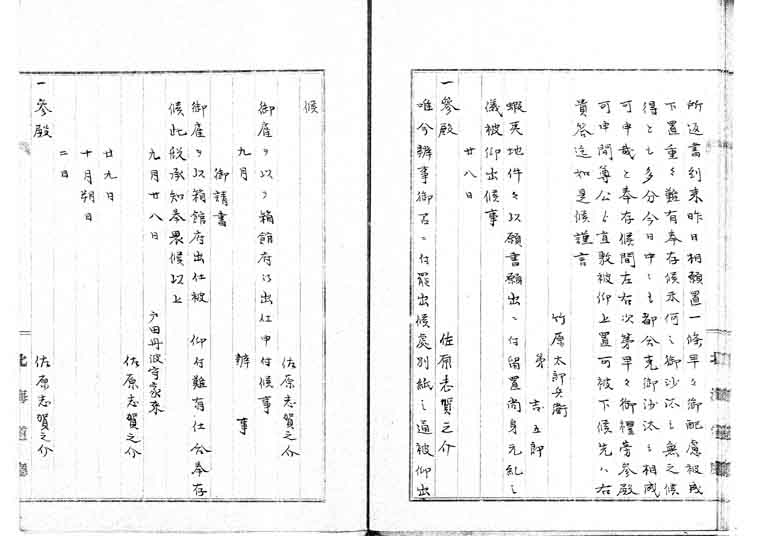 所返書到来昨日相願置一條早々御配慮被成
下置重々難有奉存候未何之御沙汰も無之候
得とも多分今日中ニも都合克御沙汰ニ相成
可申哉と奉存候間左右次第早々御禮旁参殿
可申間尊公ゟ直敷被仰上置可被下候先ハ右
貴答迄如是候謹言
竹原太郎兵衛
弟 吉五郎
蝦夷地件々以願書願出ニ付留置尚身元糺之
儀被仰出候事
廿八日
一参殿 佐原志賀之介
唯今辨事御召ニ付罷出候處別紙之通被仰出
候
佐原志賀之介
御雇ヲ以ッ箱館府江出仕申付候事
九月 辨事
御請書
御雇ヲ以箱館府出仕被 仰付難有仕合奉存
候此段承知奉畏候以上
九月廿八日 戸田丹波守家来
佐原志賀之介
廿九日
十月朔日
二日
一参殿 佐原志賀之介
北海道廳